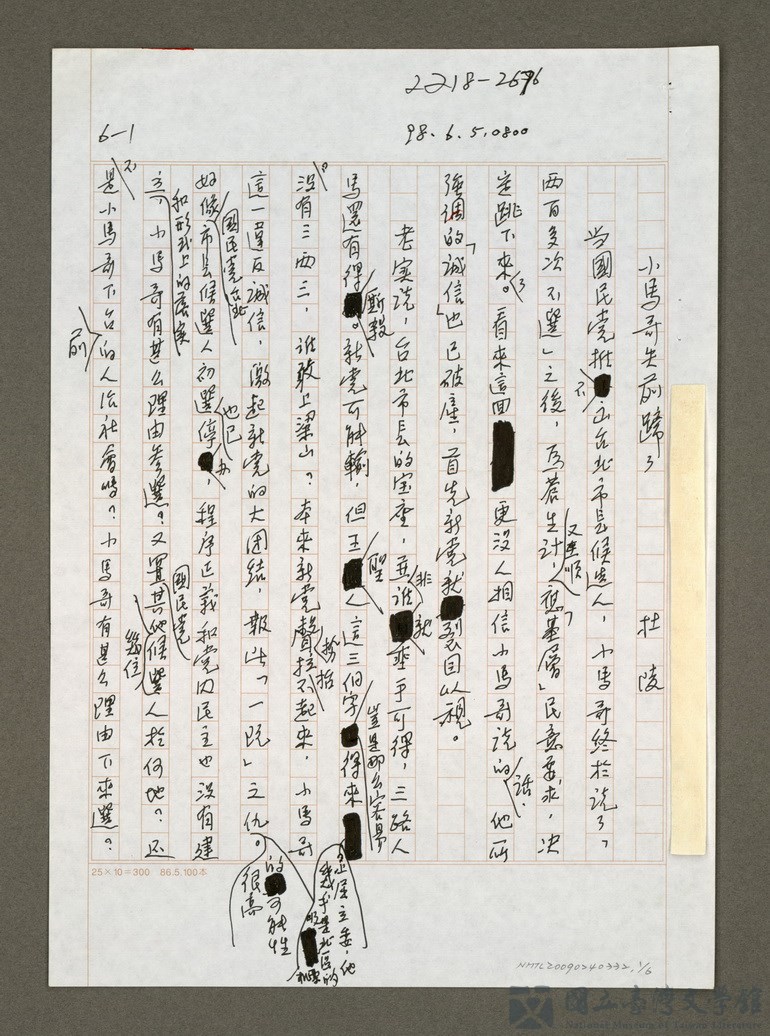 2218-2676
98.6.5.0800
6-1
小馬哥失前蹄了
杜陵
當國民党推不出台北市長候選人，小馬哥終於說了，
兩百多次不選」之後，為蒼生計，又要順應「基層」民意要求，決
定跳下來了。看來這回更沒人相信小馬哥說的話．他所
強調的「誠信」也已破產，首先新党就裂目以視。
老實說，台北市長的宝座，並非誰就垂手可得，三路人
馬還有得廝殺。新党可能輸，但王聖人這三個字得來豈是那么容易
沒有三両三，誰敢上梁山？本來新党聲拉不起來，小馬哥
這一違反誠信，激起新党的大団結，報此「一跣」之仇。
的可能性很高
好像國民党台北市長候選人初選也已停办，程序正義和党內民主也沒有建
立，和形式上的落实小馬哥有甚么理由參選？又置國民党其他幾位候選人於何地？还
不是小馬哥下台前的人治社會嗎？小馬哥有甚么理由下來選？
25×10=300 86.5.100本
NMTL20090240332, 1/6
國立臺灣文學館
National Museum of Taiwan Literature